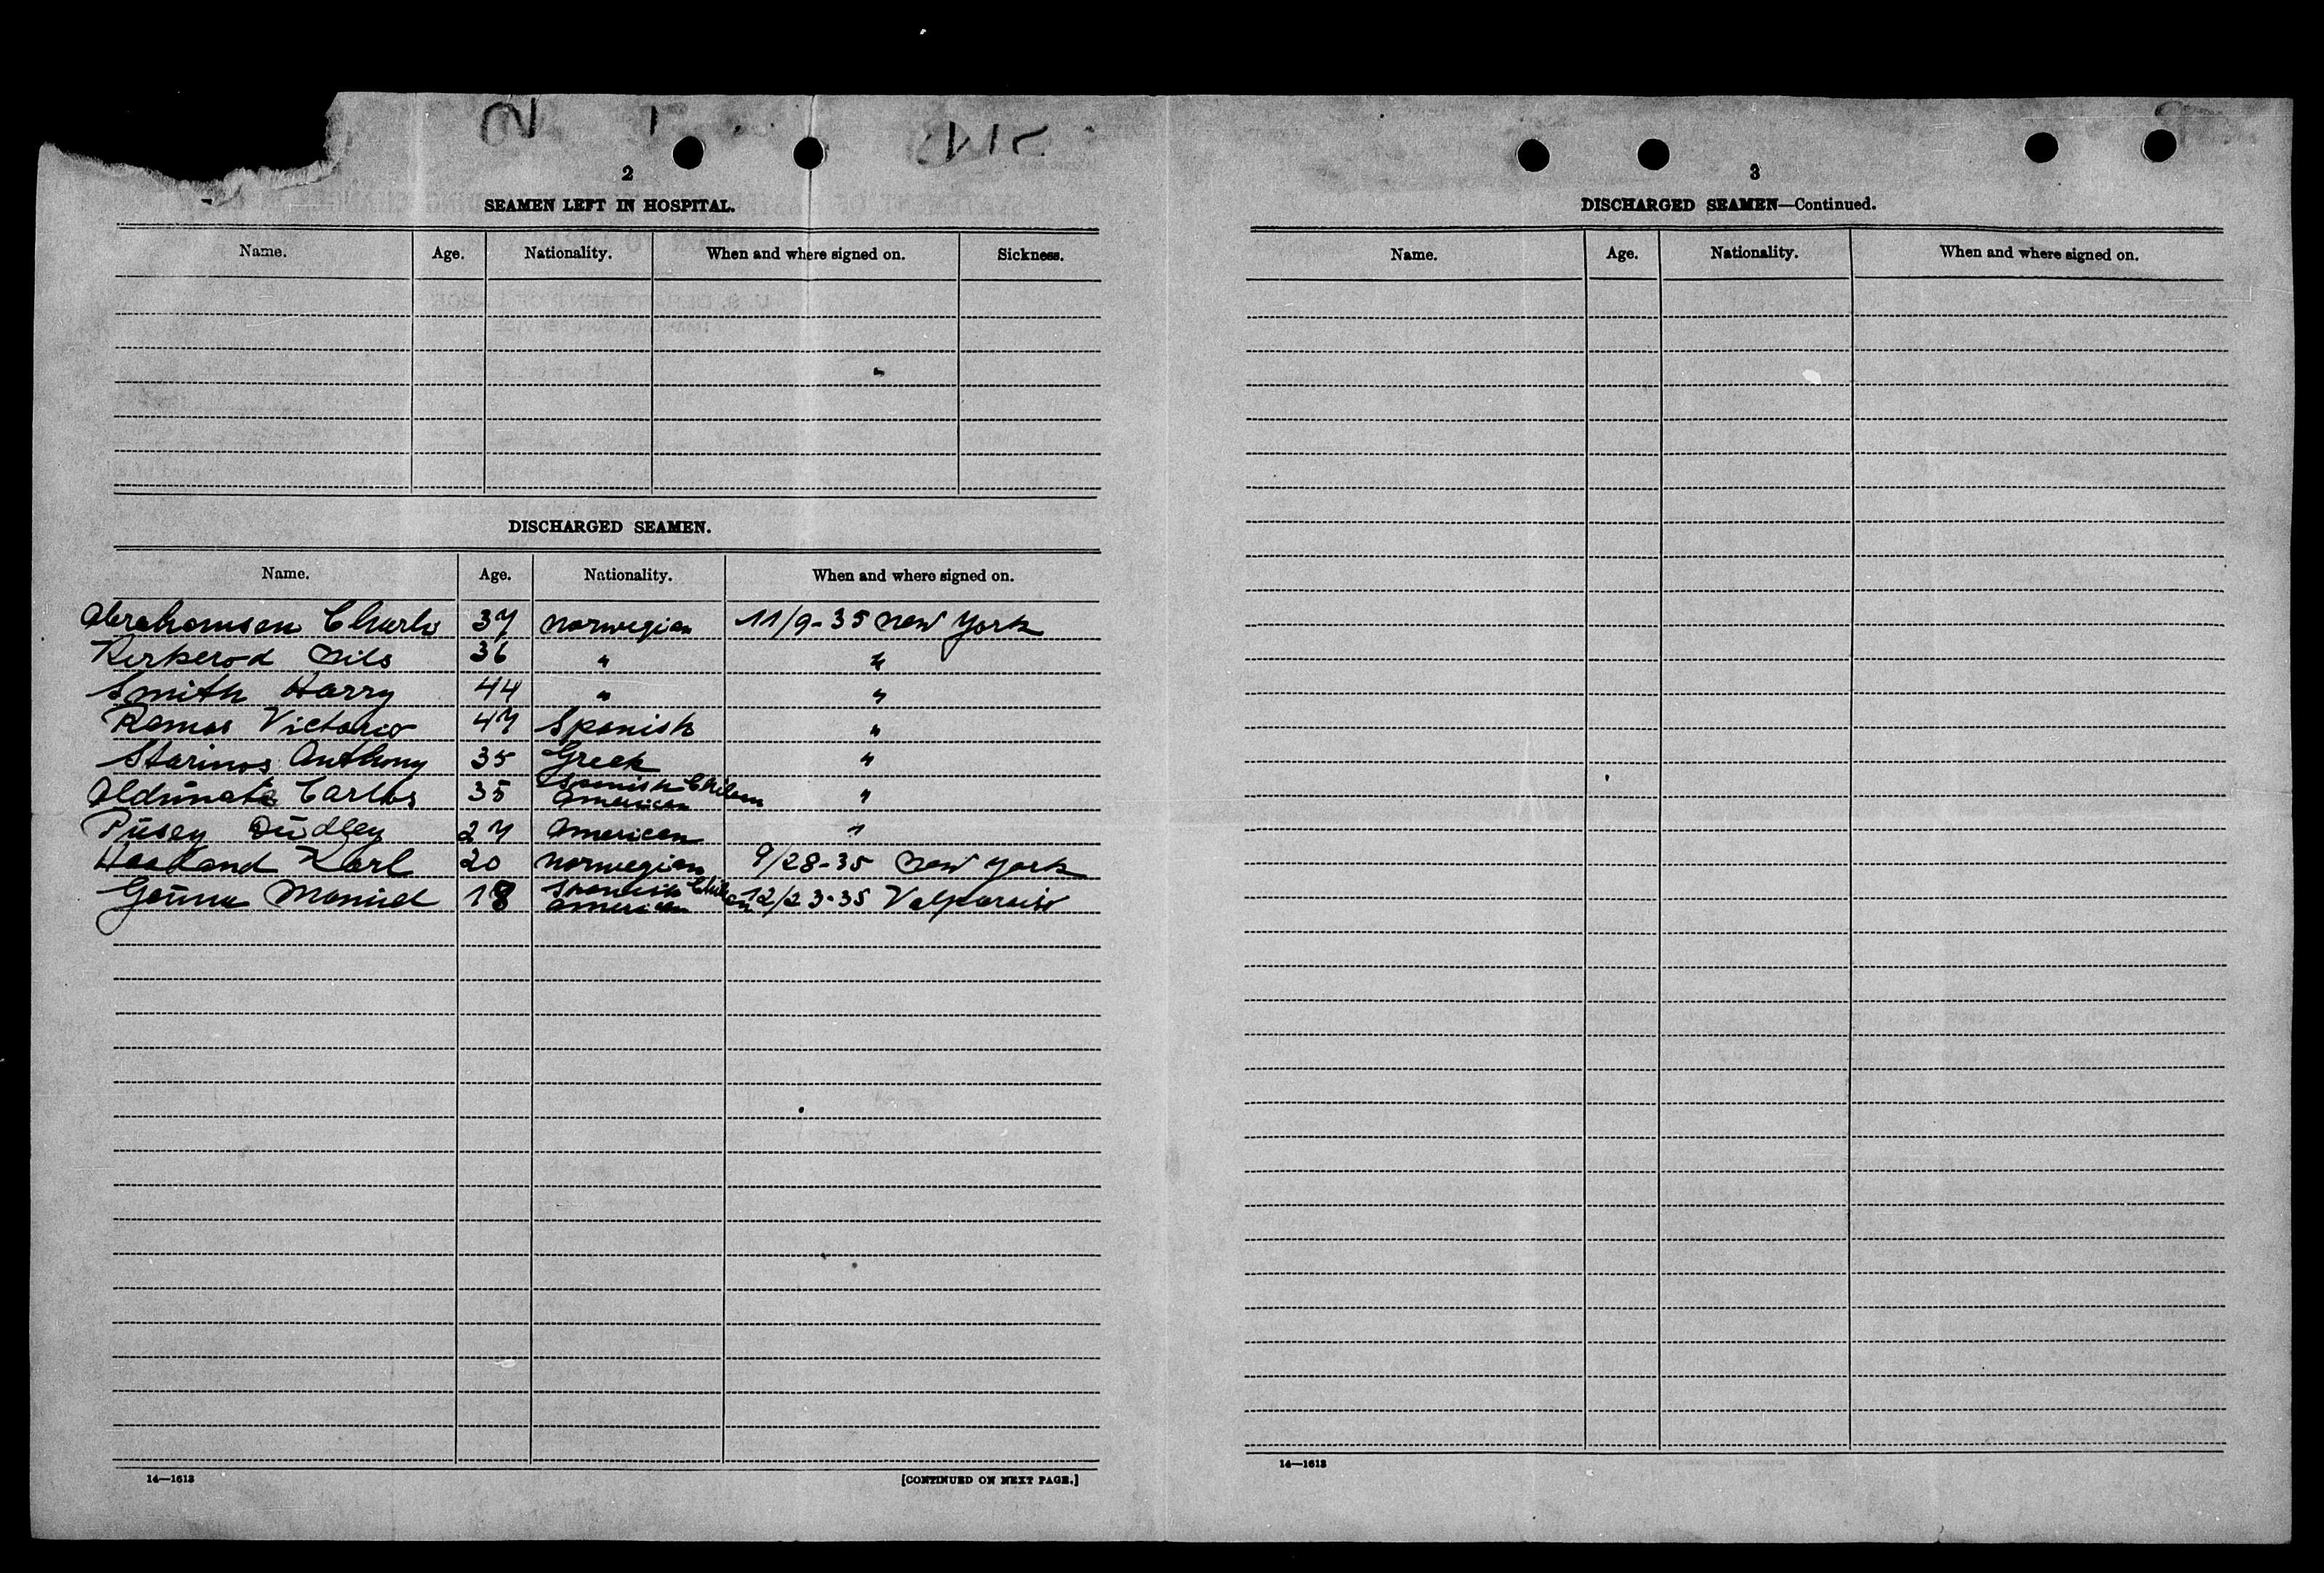 2
SEAMEN LEFT IN HOSPITAL.
Name. Age. Nationality. When and where signed on. Sickness.
DISCHARGED SEAMEN.
Name. Age. Nationality. When and where signed on.
Abrahamsen Charls 37 Norwegian 11/9-35 New York
Kirkerod Nils 36 " "
Smith Harry 44 " "
Ramos Victorio 47 Spanish "
Starinos Anthony 35 Greek "
Aldunate Carlos 35 Spanish American Chilean "
Pusey Dudley 27 American "
Karl 20 Norwegian 9/28-35 New York
Manuel 18 Spanish American Chilean 12/23-35 Valparaiso
14—1613 [CONTINUED ON NEXT PAGE.]
3
DISCHARGED SEAMEN—Continued.
Name. Age. Nationality. When and where signed on.
14—1613